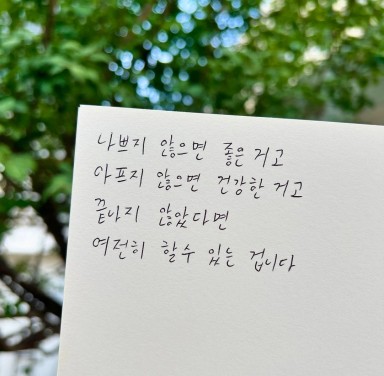 나쁘지 않으면 좋은 거고
아프지 않으면 건강한 거고
끝나지 않았다면
여전히 할수 있는 겁니다